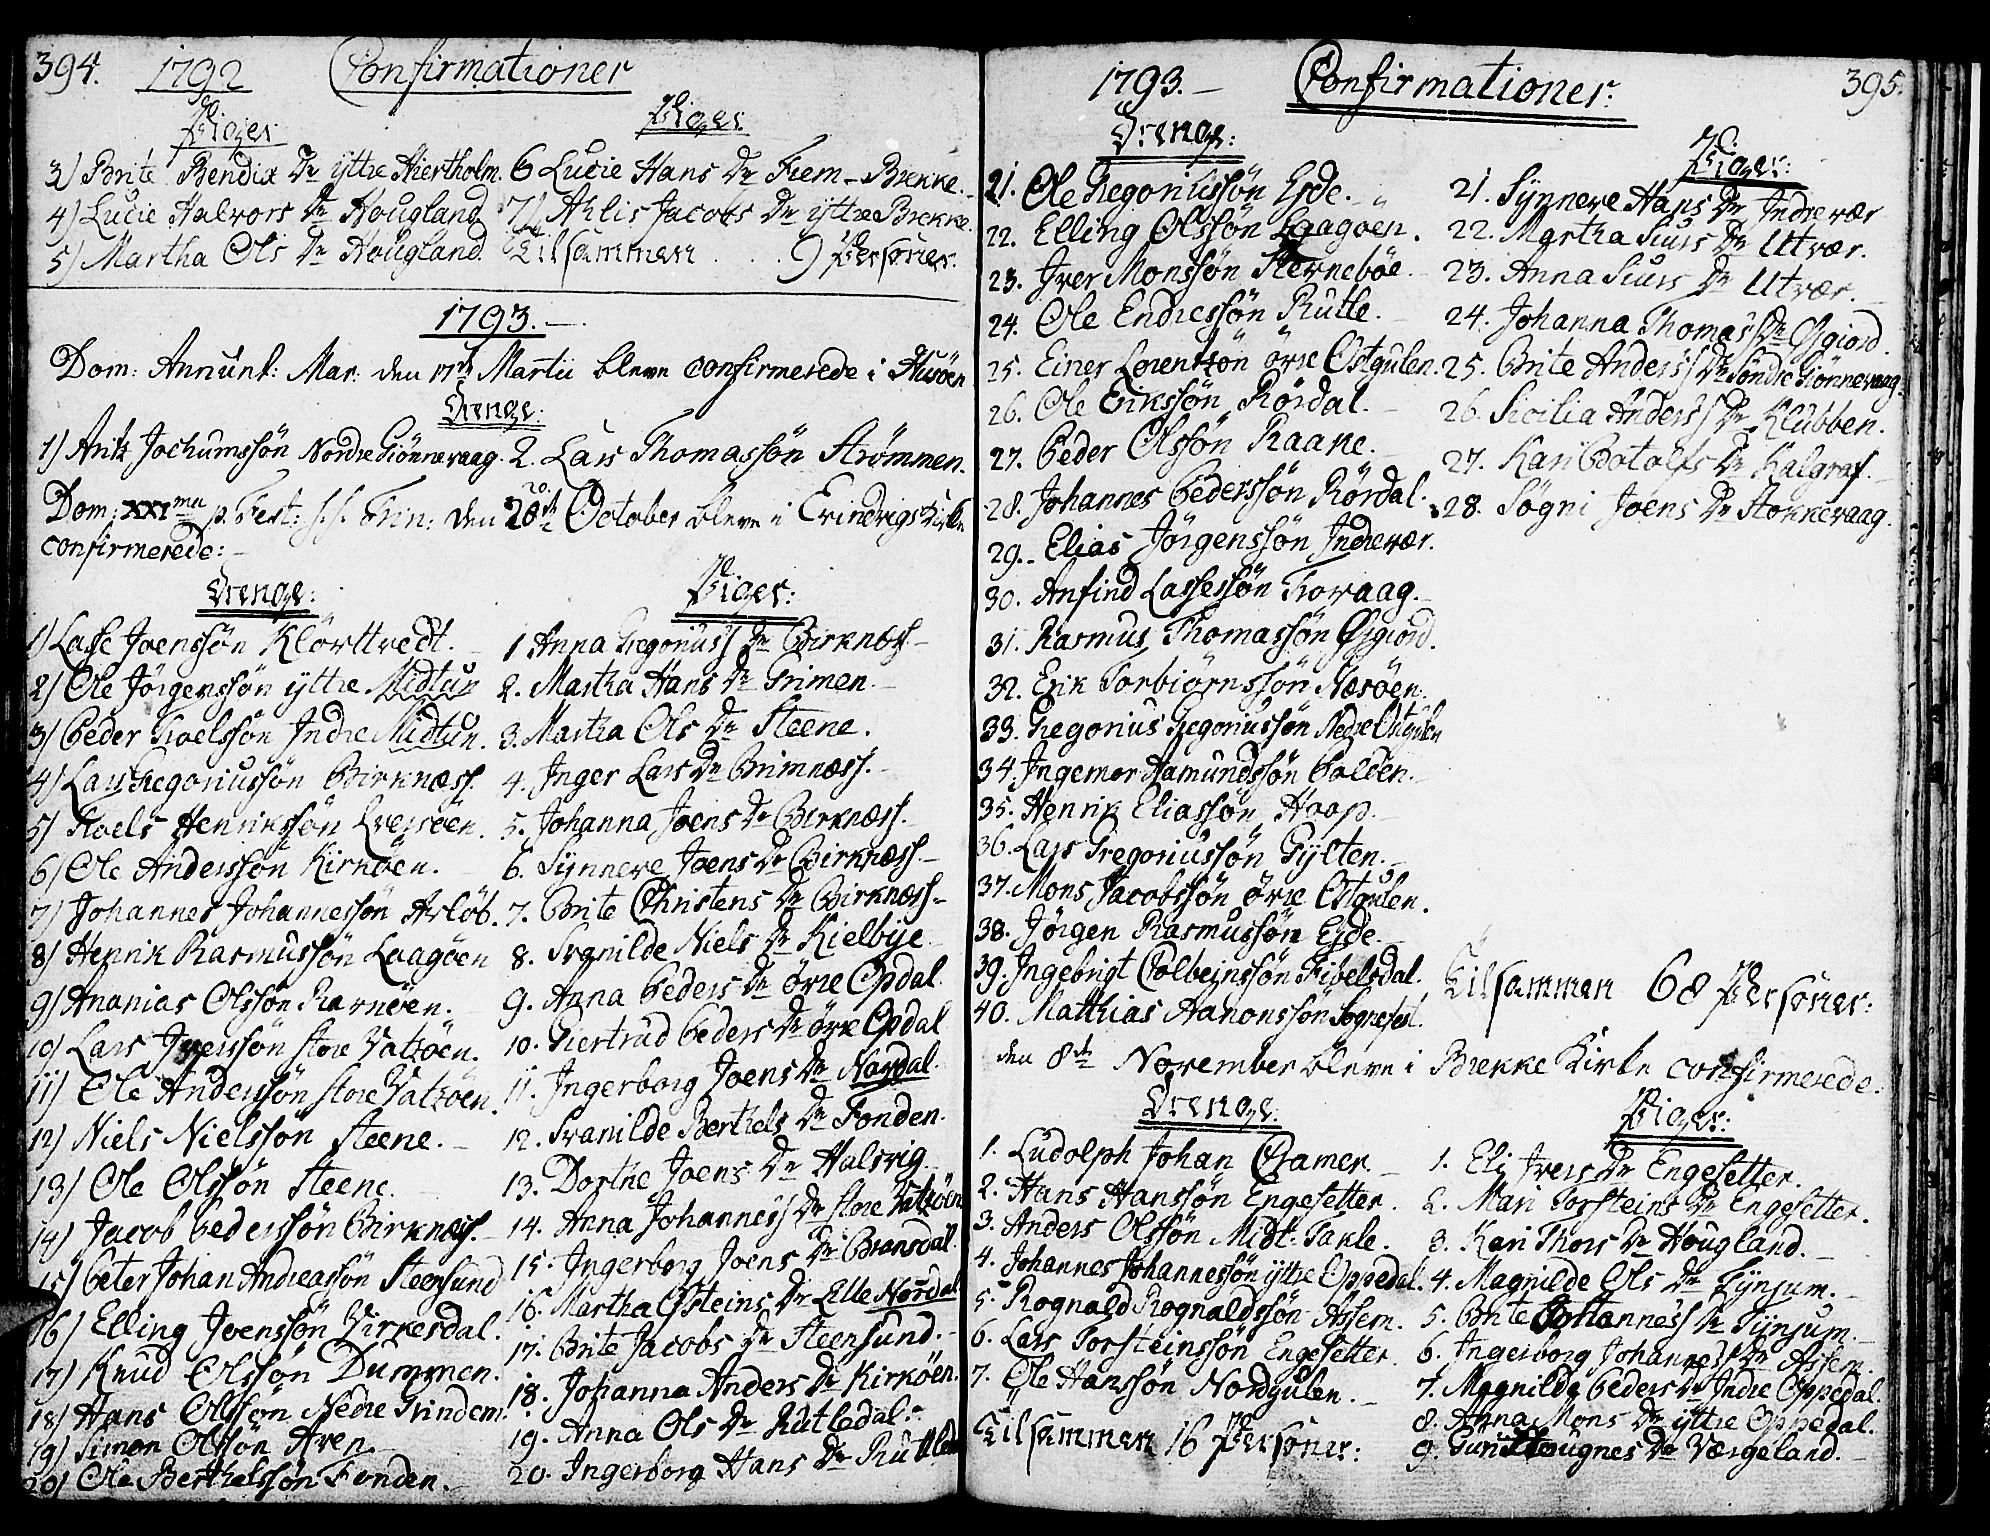 394. 1792 Confirmationer
Piger
3) Brite Bendix Dr yttre Hiertholm.
4) Lucie Halvors Dr Hougland
5) Martha Ols Dr Hougland.
Piger
6 Lucie Hans Dr Frem-Brekke.
7) Ahlis Jacobs Dr yttre Brekke.
Tilsammen . . . 9 Personer.
1793.
Dom: Annunt: Mar: den 17de Martii bleve confirmerede i Husöen
Drenge:
1) Antz Jochumssön Nordre Giönnevaag. 2. Lars Thomassön Strömmen.
Dom: XXIma p. Fest: s.s. Trin: den 20de October bleve i Evindvigs Kirke
confirmerede:
Drenge:
1) Lasse Joenssön Klörttvedt.
2) Ole Jörgenssön yttre Midtun
3) Peder Roelssön Indre Midtun.
4) Lars Gregoriussön Birknæss.
5) Roels Henrikssön Lversöen.
6) Ole Anderssön Kirköen.
7) Johannes Johannessön Aslöb.
8) Henrik Rasmussön Laagöen
9) Ananias Olssön Ravnöen.
10) Lars Iverssön store Vatzöen.
11) Ole Anderssön store Vatzöen.
12) Niels Nielssön Steene.
13) Ole Olssön Steene.
14) Jacob Pederssön Birknæss.
15) Peter Johan Andreassön Steensund
16) Elling Joenssön Virkesdal.
17) Knud Olssön Dummen.
18) Hans Olssön Nedre Grindem.
19) Simon Olssön Aven.
20) Ole Berthelssön Fonden.
Piger:
1 Anna Gregorius's Dr Birknæss
2. Martha Hans Dr Grimen
3. Martha Ols Dr Steene.
4. Inger Lars Dr Brimnæss.
5. Johanna Joens Dr Birknæss.
6. Synneve Joens Dr Birknæss.
7. Brite Christens Dr Birknæss.
8. Svanilde Niels Dr Kielbye
9. Anna Peders Dr övre Opdal.
10. Giertrud Peders Dr övre Opdal
11. Ingerborg Joens Dr Nordal.
12. Svanilde Berthels Dr Fonden.
13. Dorthe Joens Dr Halsvig
14. Anna Johannes's Dr store Vatzöen
15. Ingerborg Joens Dr Bransdal.
16. Martha Osteins Dr Lille Nordal
17. Brite Jacobs Dr Steensund.
18. Johanna Anders Dr Kirköen.
19. Anna Ols Dr Rutledal.
20. Ingerborg Hans Dr Rutledal
1793. Confirmationer: 395.
Drenge:
21. Ole Gregoriussön Eyde.
22. Elling Olssön Laagoen.
23. Iver Monssön Sterneböe.
24. Ole Endressön Rutle.
25. Einer Lorentzön övre Ostgulen.
26. Ole Erikssön Rördal.
27. Peder Olssön Raane.
28. Johannes Pederssön Rördal.
29. Elias Jörgenssön Indrevær.
30. Anfind Lassessön Tovaag.
31. Rasmus Thomassön Öygiord.
32. Erik Torbiörnssön Næsöen.
33. Gregorius Gregoriussön Nedre Ostgulen
34. Ingemor Aamundssön Polden.
35. Henrik Eliassön Hoop.
36. Lars Gregoriussön Gylten.
37. Mons Jacobssön övre Ostgulen.
38. Jörgen Rasmussön Eyde.
39. Ingebrigt Colbeinssön Fibelsdal.
40. Matthias Aanonssön Sognefest.
Piger:
21. Synneve Hans Dr Indrevær
22. Martha Siurs Dr Utvær.
23. Anna Siurs Dr Utvær.
24. Johanna Thomas's Dr Öygiord.
25. Brite Anders's Dr Söndre Giönnevaag.
26. Sicilia Anders's Dr Klubben.
27. Kari Botolfs Dr Kalgraf.
28. Sögni Joens Dr Stokkevaag.
Tilsammen 68 Personer:
den 8de November bleve i Brekke Kirke confirmerede:
Drenge:
1. Ludolph Johan Cramer.
2. Hans Hanssön Engesetter.
3. Anders Olssön Midt-Takle.
4. Johannes Johannessön yttre Oppedal.
5. Rognald Rognaldssön Assem.
6. Lars Torsteinssön Engesetter.
7. Ole Hanssön Nordgulen.
Tilsammen 16 Personer:
Piger:
1. Eli Ivers Dr Engesetter.
2. Mari Torsteins Dr Engesetter.
3. Kari Thors Dr Hougland.
4. Magnilde Ols Dr Tynjum.
5. Brite Johannes's Dr Tynjum.
6. Ingerborg Johannes's Dr Assem.
7. Magnilde Peders Dr Indre Oppedal.
8. Anna Mons Dr yttre Oppedal.
9. Dr Værgeland.